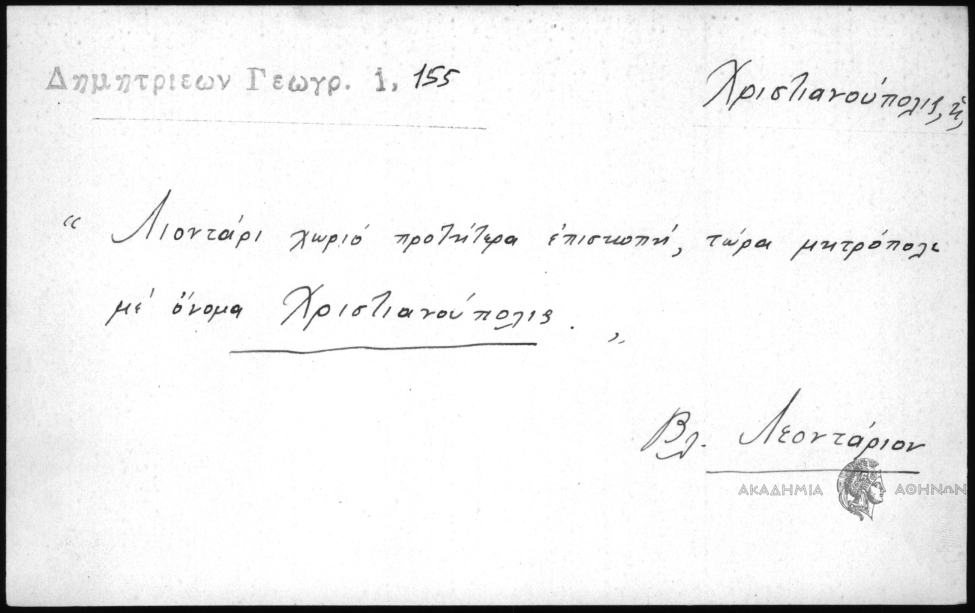 Δημητριεων Γεωγρ. 1, 155
Χριστιανούπολις, ἡ
“ Λιοντάρι χωριό προτήτερα ἐπισκοπή, τώρα μητρόπολι
μέ ὄνομα Χριστιανούπολις. „
Βλ. Λεοντάριον
ΑΚΑΔΗΜΙΑ ΑΘΗΝΩΝ